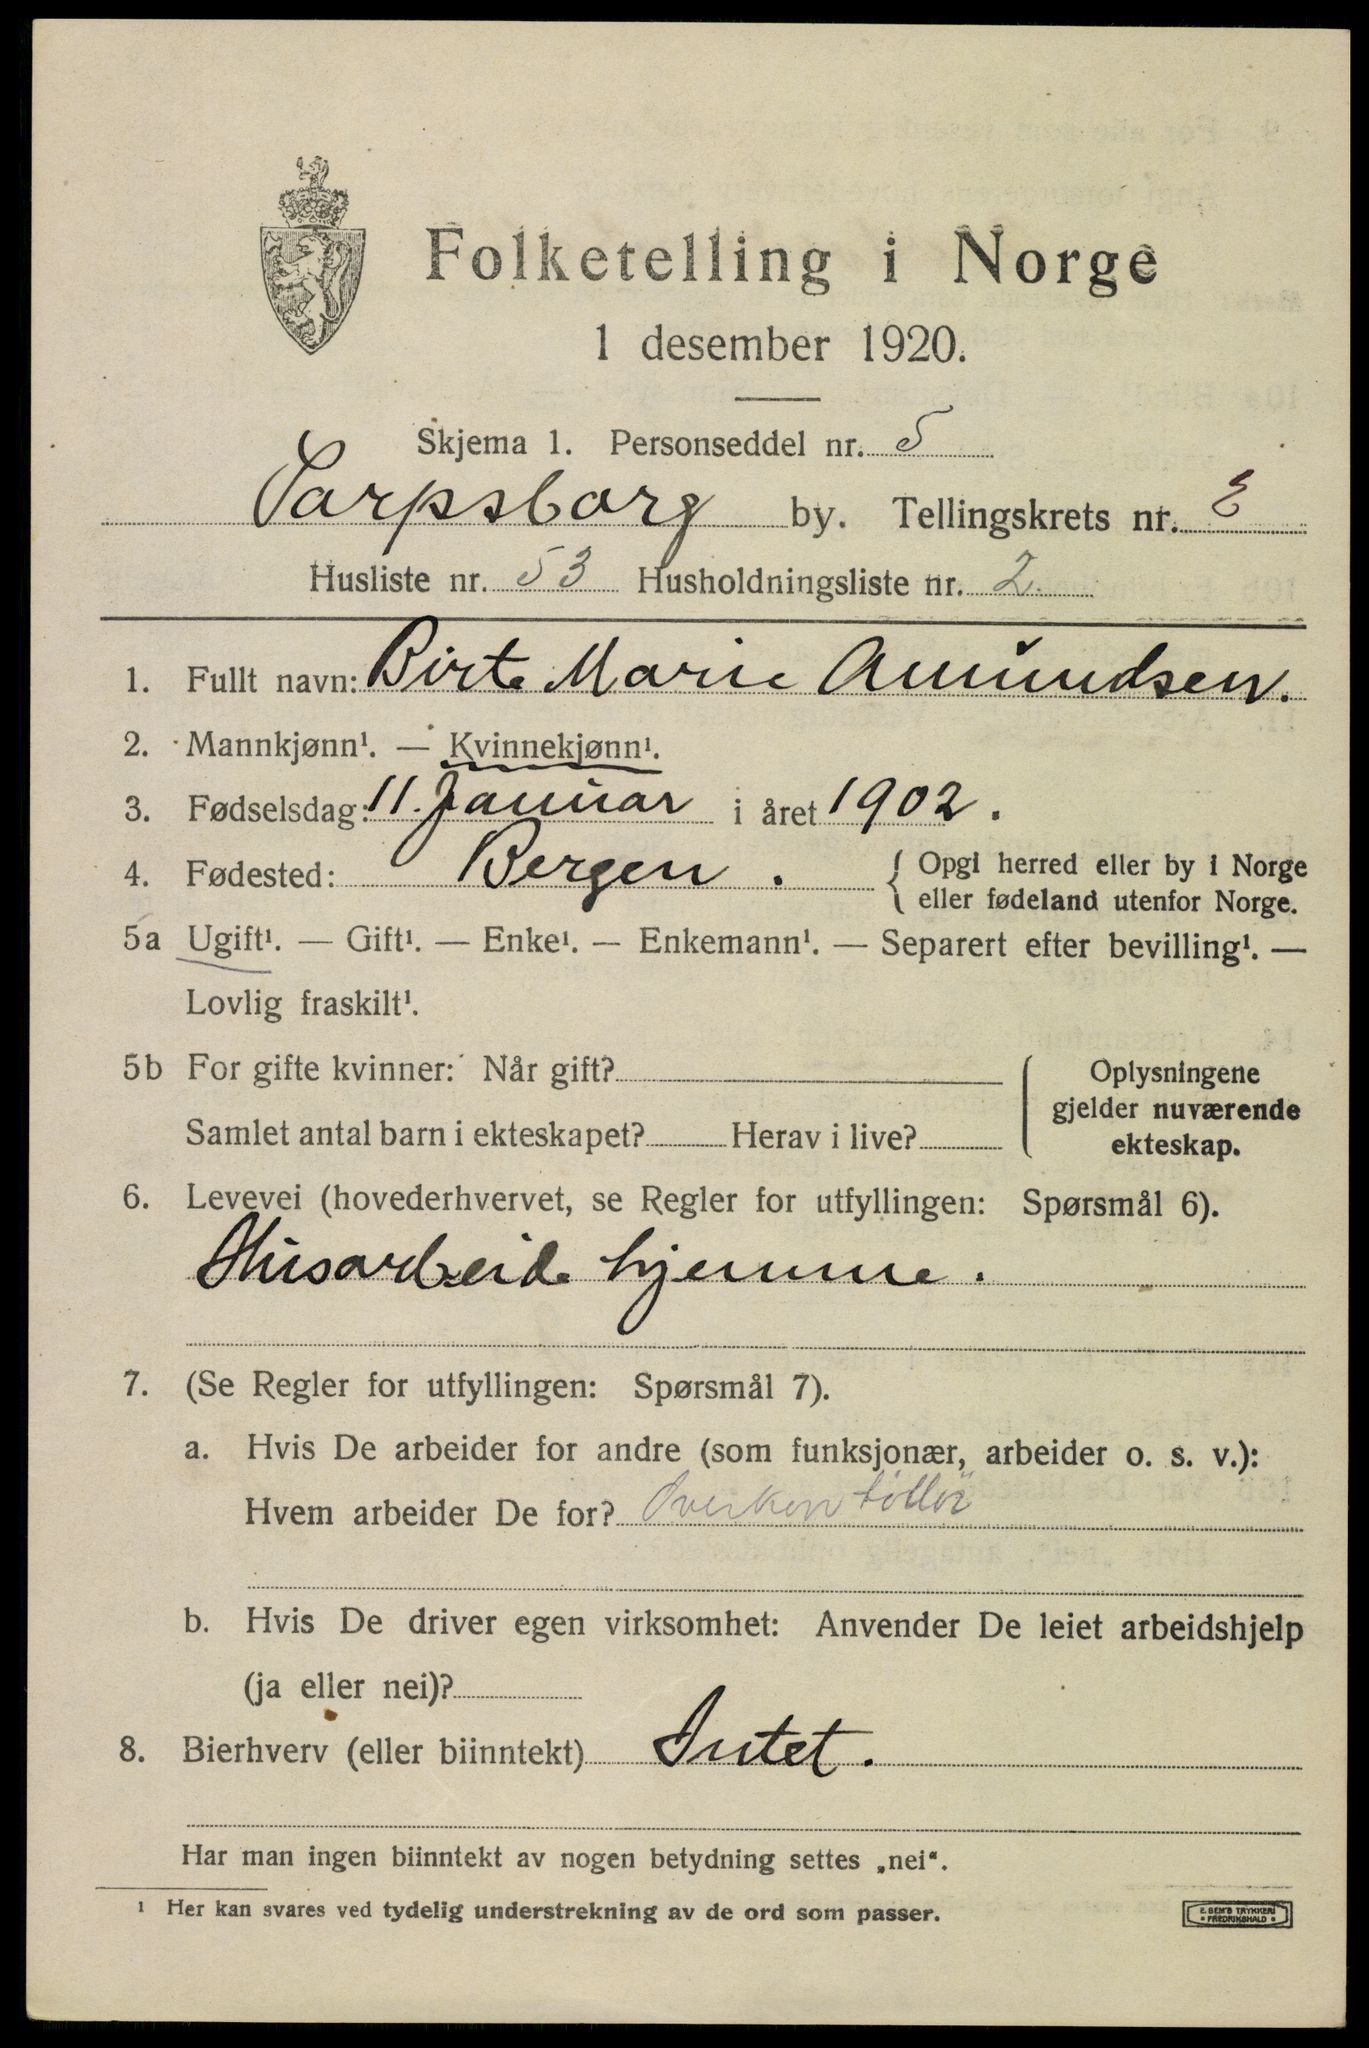 Folketelling i Norge
1 desember 1920.
Skjema 1. Personseddel nr. 5
Sarpsborg by. Tellingskrets nr. E
Husliste nr. 53 Husholdningsliste nr. 2
1. Fullt navn: Birte Marie Amundsen.
2. Mannkjønn¹. — Kvinnekjønn¹.
3. Fødselsdag: 11. Januar i året 1902.
4. Fødested: Bergen. { Opgi herred eller by i Norge
eller fødeland utenfor Norge.
5a Ugift¹. — Gift¹. — Enke¹. — Enkemann¹. — Separert efter bevilling¹. —
Lovlig fraskilt¹.
5b For gifte kvinner: Når gift?
Samlet antal barn i ekteskapet? Herav i live?
Oplysningene
gjelder nuværende
ekteskap.
6. Levevei (hovederhvervet, se Regler for utfyllingen: Spørsmål 6).
Husarbeide hjemme.
7. (Se Regler for utfyllingen: Spørsmål 7).
a. Hvis De arbeider for andre (som funksjonær, arbeider o. s. v.):
Hvem arbeider De for?
b. Hvis De driver egen virksomhet: Anvender De leiet arbeidshjelp
(ja eller nei)?
8. Bierhverv (eller biinntekt) Intet.
Har man ingen biinntekt av nogen betydning settes „nei“.
¹ Her kan svares ved tydelig understrekning av de ord som passer.
E. SEM'S TRYKKERI
FREDRIKSHALD